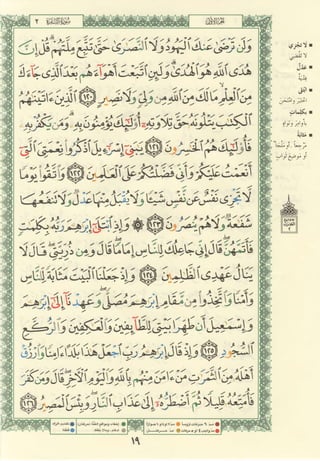 الجزء الأول
سورة البقرة ٢
وَلَن تَرْضَىٰ عَنكَ ٱلْيَهُودُ وَلَا ٱلنَّصَٰرَىٰ حَتَّىٰ تَتَّبِعَ مِلَّتَهُمْ ۗ قُلْ إِنَّ
هُدَى ٱللَّهِ هُوَ ٱلْهُدَىٰ ۗ وَلَئِنِ ٱتَّبَعْتَ أَهْوَآءَهُم بَعْدَ ٱلَّذِى جَآءَكَ
مِنَ ٱلْعِلْمِ ۙ مَا لَكَ مِنَ ٱللَّهِ مِن وَلِىٍّ وَلَا نَصِيرٍ ١٢٠ ٱلَّذِينَ ءَاتَيْنَٰهُمُ
ٱلْكِتَٰبَ يَتْلُونَهُۥ حَقَّ تِلَاوَتِهِۦٓ أُو۟لَٰٓئِكَ يُؤْمِنُونَ بِهِۦ ۗ وَمَن يَكْفُرْ بِهِۦ
فَأُو۟لَٰٓئِكَ هُمُ ٱلْخَٰسِرُونَ ١٢١ يَٰبَنِىٓ إِسْرَٰٓءِيلَ ٱذْكُرُوا۟ نِعْمَتِىَ ٱلَّتِىٓ
أَنْعَمْتُ عَلَيْكُمْ وَأَنِّى فَضَّلْتُكُمْ عَلَى ٱلْعَٰلَمِينَ ١٢٢ وَٱتَّقُوا۟ يَوْمًا
لَّا تَجْزِى نَفْسٌ عَن نَّفْسٍ شَيْـًٔا وَلَا يُقْبَلُ مِنْهَا عَدْلٌ وَلَا تَنفَعُهَا
شَفَٰعَةٌ وَلَا هُمْ يُنصَرُونَ ١٢٣ ۞ وَإِذِ ٱبْتَلَىٰٓ إِبْرَٰهِۦمَ رَبُّهُۥ بِكَلِمَٰتٍ
فَأَتَمَّهُنَّ ۖ قَالَ إِنِّى جَاعِلُكَ لِلنَّاسِ إِمَامًا ۖ قَالَ وَمِن ذُرِّيَّتِى ۖ قَالَ لَا
يَنَالُ عَهْدِى ٱلظَّٰلِمِينَ ١٢٤ وَإِذْ جَعَلْنَا ٱلْبَيْتَ مَثَابَةً لِّلنَّاسِ
وَأَمْنًا وَٱتَّخِذُوا۟ مِن مَّقَامِ إِبْرَٰهِۦمَ مُصَلًّى ۖ وَعَهِدْنَآ إِلَىٰٓ إِبْرَٰهِۦمَ
وَإِسْمَٰعِيلَ أَن طَهِّرَا بَيْتِىَ لِلطَّآئِفِينَ وَٱلْعَٰكِفِينَ وَٱلرُّكَّعِ
ٱلسُّجُودِ ١٢٥ وَإِذْ قَالَ إِبْرَٰهِۦمُ رَبِّ ٱجْعَلْ هَٰذَا بَلَدًا ءَامِنًا وَٱرْزُقْ
أَهْلَهُۥ مِنَ ٱلثَّمَرَٰتِ مَنْ ءَامَنَ مِنْهُم بِٱللَّهِ وَٱلْيَوْمِ ٱلْءَاخِرِ ۖ قَالَ وَمَن كَفَرَ
فَأُمَتِّعُهُۥ قَلِيلًا ثُمَّ أَضْطَرُّهُۥٓ إِلَىٰ عَذَابِ ٱلنَّارِ ۖ وَبِئْسَ ٱلْمَصِيرُ ١٢٦
١٩